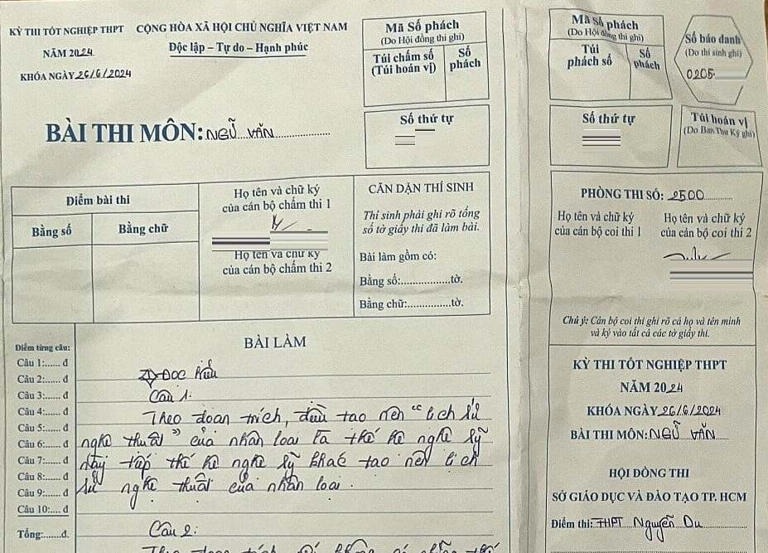 KỲ THI TỐT NGHIỆP THPT
NĂM 2024
KHÓA NGÀY 26/6/2024
CỘNG HÒA XÃ HỘI CHỦ NGHĨA VIỆT NAM
Độc lập – Tự do – Hạnh phúc
BÀI THI MÔN: NGỮ VĂN
Mã Số phách
(Do Hội đồng thi ghi)
Túi chấm số
(Túi hoán vị)
Số phách
Số thứ tự
Điểm bài thi
Bằng số
Bằng chữ
Họ tên và chữ ký
của cán bộ chấm thi 1
Họ tên và chữ ký
của cán bộ chấm thi 2
CĂN DẶN THÍ SINH
Thí sinh phải ghi rõ tổng
số tờ giấy thi đã làm bài.
Bài làm gồm có:
Bằng số:................tờ.
Bằng chữ:..............tờ.
BÀI LÀM
Điểm từng câu:
Câu 1:...... đ
Câu 2:...... đ
Câu 3:...... đ
Câu 4:...... đ
Câu 5:...... đ
Câu 6:...... đ
Câu 7:...... đ
Câu 8:...... đ
Câu 9:...... đ
Câu 10:.... đ
Tổng:......đ.
I, Đọc hiểu
Câu 1:
Theo đoạn trích, điều tạo nên "lịch sử
nghệ thuật" của nhân loại là thế hệ nghệ sỹ
này tiếp thế hệ nghệ sỹ khác tạo nên lịch
sử nghệ thuật của nhân loại.
Câu 2:
Theo đoạn trích,
Mã Số phách
(Do Hội đồng thi ghi)
Túi
phách số
Số
phách
Số báo danh
(Do thí sinh ghi)
0205
Số thứ tự
Túi hoán vị
(Do Ban Thư Ký ghi)
PHÒNG THI SỐ: 2500
Họ tên và chữ ký
của cán bộ coi thi 1
Họ tên và chữ ký
của cán bộ coi thi 2
Chú ý: Cán bộ coi thi ghi rõ cả họ và tên mình
và ký vào tất cả các tờ giấy thi.
KỲ THI TỐT NGHIỆP THPT
NĂM 2024
KHÓA NGÀY 26/6/2024
BÀI THI MÔN: NGỮ VĂN
HỘI ĐỒNG THI
SỞ GIÁO DỤC VÀ ĐÀO TẠO TP. HCM
Điểm thi: THPT Nguyễn Du